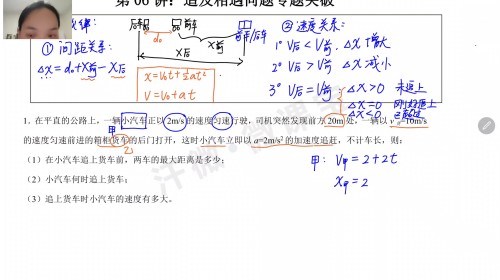 第 06 讲：追及相遇问题专题突破
规律：
后车 前车
d₀
前车/后车
X后 X前
① 间距关系：
Δx = d₀ + X前 - X后
x = v₀t + ½at²
v = v₀ + at
② 速度关系：
1° V后 < V前，Δx 增大
2° V后 > V前，Δx 减小
3° V后 = V前， Δx > 0 未追上
Δx = 0 刚好追上
Δx < 0
1. 在平直的公路上，一辆小汽车正以 2m/s 的速度匀速行驶，司机突然发现前方 20m 处，一辆以 v =10m/s
甲
的速度匀速前进的箱柜货车的后门打开，这时小汽车立即以 a=2m/s² 的加速度追赶，不计车长，则：
乙
（1）在小汽车追上货车前，两车的最大距离是多少；
（2）小汽车何时追上货车；
（3）追上货车时小汽车的速度有多大。
甲： V甲 = 2 + 2t
X甲 = 2